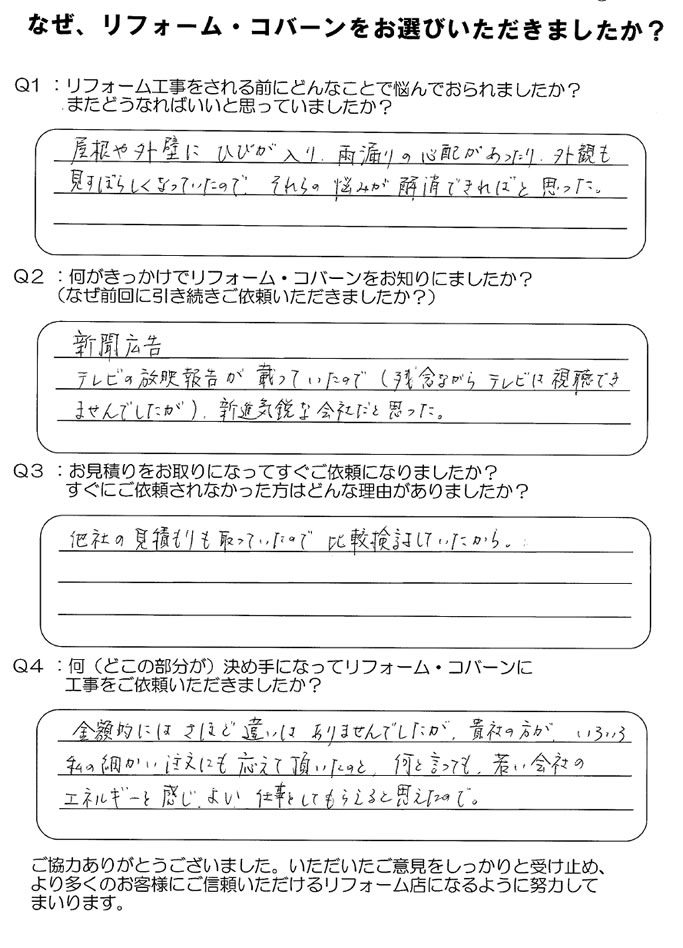 なぜ、リフォーム・コバーンをお選びいただきましたか？
Q1 ：リフォーム工事をされる前にどんなことで悩んでおられましたか？
またどうなればいいと思っていましたか？
屋根や外壁に ひびが入り、雨漏りの心配があったり、外観も
見すぼらしくなっていたので、それらの悩みが解消できればと思った。
Q2 ：何がきっかけでリフォーム・コバーンをお知りにましたか？
（なぜ前回に引き続きご依頼いただきましたか？）
新聞広告
テレビの放映報告が載っていたので（残念ながらテレビは視聴でき
ませんでしたが）、新進気鋭な会社だと思った。
Q3 ：お見積りをお取りになってすぐご依頼になりましたか？
すぐにご依頼されなかった方はどんな理由がありましたか？
他社の見積もりも取っていたので比較検討していたから。
Q4 ：何（どこの部分が）決め手になってリフォーム・コバーンに
工事をご依頼いただきましたか？
金額的にはさほど違いはありませんでしたが、貴社の方が、いろいろ
私の細かい注文にも応えて頂いたのと、何と言っても、若い会社の
エネルギーを感じ、よい仕事をしてもらえると思えたので。
ご協力ありがとうございました。いただいたご意見をしっかりと受け止め、
より多くのお客様にご信頼いただけるリフォーム店になるように努力して
まいります。